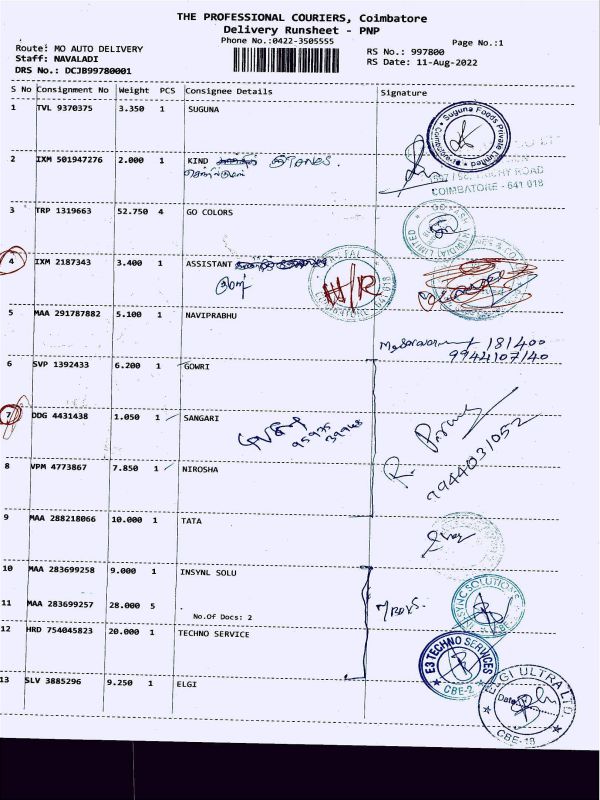 THE PROFESSIONAL COURIERS, Coimbatore
Delivery Runsheet - PNP
Phone No.:0422-3505555
Page No.:1
Route: MO AUTO DELIVERY
Staff: NAVALADI
DRS No.: DCJB99780001
RS No.: 997800
RS Date: 11-Aug-2022
S No Consignment No Weight PCS Consignee Details Signature
1 TVL 9370375 3.350 1 SUGUNA
Suguna Foods Private Limited
Coimbatore
2 IXM 501947276 2.000 1 KIND
TRICHY ROAD
COIMBATORE - 641 018
3 TRP 1319663 52.750 4 GO COLORS
4 IXM 2187343 3.400 1 ASSISTANT
5 MAA 291787882 5.100 1 NAVIPRABHU
181400
9944107140
6 SVP 1392433 6.200 1 GOWRI
7 DDG 4431438 1.050 1 SANGARI
R.
9944031052
8 VPM 4773867 7.850 1 NIROSHA
9 MAA 288218066 10.000 1 TATA
10 MAA 283699258 9.000 1 INSYNL SOLU
11 MAA 283699257 28.000 5
No.Of Docs: 2
12 HRD 754045823 20.000 1 TECHNO SERVICE
E3 TECHNO SERVICES
CBE-2
13 SLV 3885296 9.250 1 ELGI
ELGI ULTRA LTD.
Date:
CBE-18